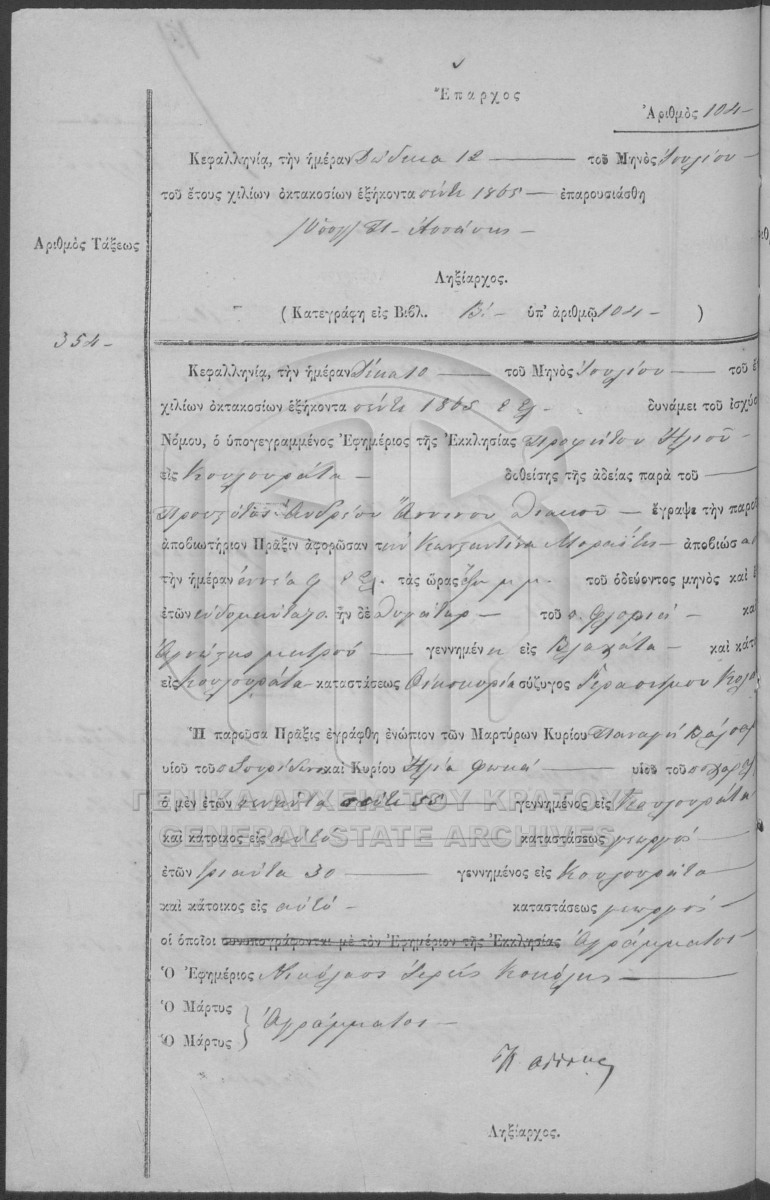 Ἔπαρχος
Ἀριθμὸς 104
Κεφαλληνίᾳ, τὴν ἡμέραν Δώδεκα 12 — τοῦ Μηνὸς Ἰουλίου
τοῦ ἔτους χιλίων ὀκτακοσίων ἑξήκοντα πέντε 1865 — ἐπαρουσιάσθη
Ἀριθμὸς Τάξεως
Ληξίαρχος.
( Κατεγράφη εἰς Βιβλ. Β΄ — ὑπ' ἀριθμῷ 104 — )
354
Κεφαλληνίᾳ, τὴν ἡμέραν Δέκα 10 — τοῦ Μηνὸς Ἰουλίου — τοῦ
χιλίων ὀκτακοσίων ἑξήκοντα πέντε 1865 δυνάμει τοῦ ἰσχύο
Νόμου, ὁ ὑπογεγραμμένος Ἐφημέριος τῆς Ἐκκλησίας Προφήτου Ἠλιοῦ
εἰς Κουλουράτα — δοθείσης τῆς ἀδείας παρὰ τοῦ —
Ἀνδρέου — ἔγραψε τὴν παροῦ
ἀποβιωτήριον Πρᾶξιν ἀφορῶσαν την Μοραΐτη — ἀποβιώσα
τὴν ἡμέραν ἐννέα 9 τὰς ὥρας μ.μ. τοῦ ὁδεύοντος μηνὸς καὶ ἔ
ἐτῶν ἦν δὲ θυγάτηρ — τοῦ — καὶ
μητρού — γεννημένη εἰς Βλαχάτα — καὶ κάτο
εἰς Κουλουράτα καταστάσεως Οἰκοκυρία σύζυγος Γερασίμου
Ἡ παροῦσα Πρᾶξις ἐγράφθη ἐνώπιον τῶν Μαρτύρων Κυρίου Παναγή
υἱοῦ τοῦ καὶ Κυρίου Ἠλία Φωκά — υἱοῦ τοῦ
ὁ μὲν ἐτῶν πενῆντα πέντε 55 γεννημένος εἰς Κουλουράτα
καὶ κάτοικος εἰς αὐτό — καταστάσεως γεωργός —
ἐτῶν τριάντα 30 — γεννημένος εἰς Κουλουράτα
καὶ κάτοικος εἰς αὐτό — καταστάσεως γεωργός —
οἱ ὁποῖοι συνυπογράφονται μὲ τὸν Ἐφημέριον τῆς Ἐκκλησίας Ἀγράμματοι
Ὁ Ἐφημέριος Νικόλαος Ἱερεύς —
Ὁ Μάρτυς
Ἀγράμματοι —
Ὁ Μάρτυς
Ληξίαρχος.
ΓΕΝΙΚΑ ΑΡΧΕΙΑ ΤΟΥ ΚΡΑΤΟΥΣ
GENERAL STATE ARCHIVES